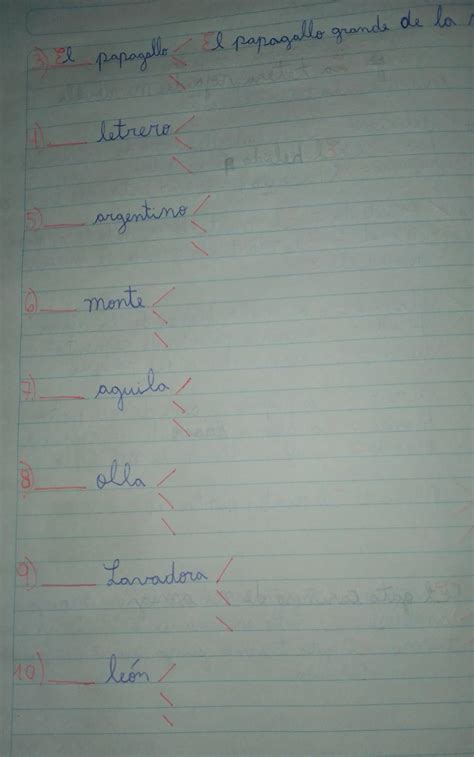 3) El papagallo El papagallo grande de la
4) ___ letrero
5) ___ argentino
6) ___ monte
7) ___ aguila
8) ___ olla
9) ___ Lavadora
10) ___ león